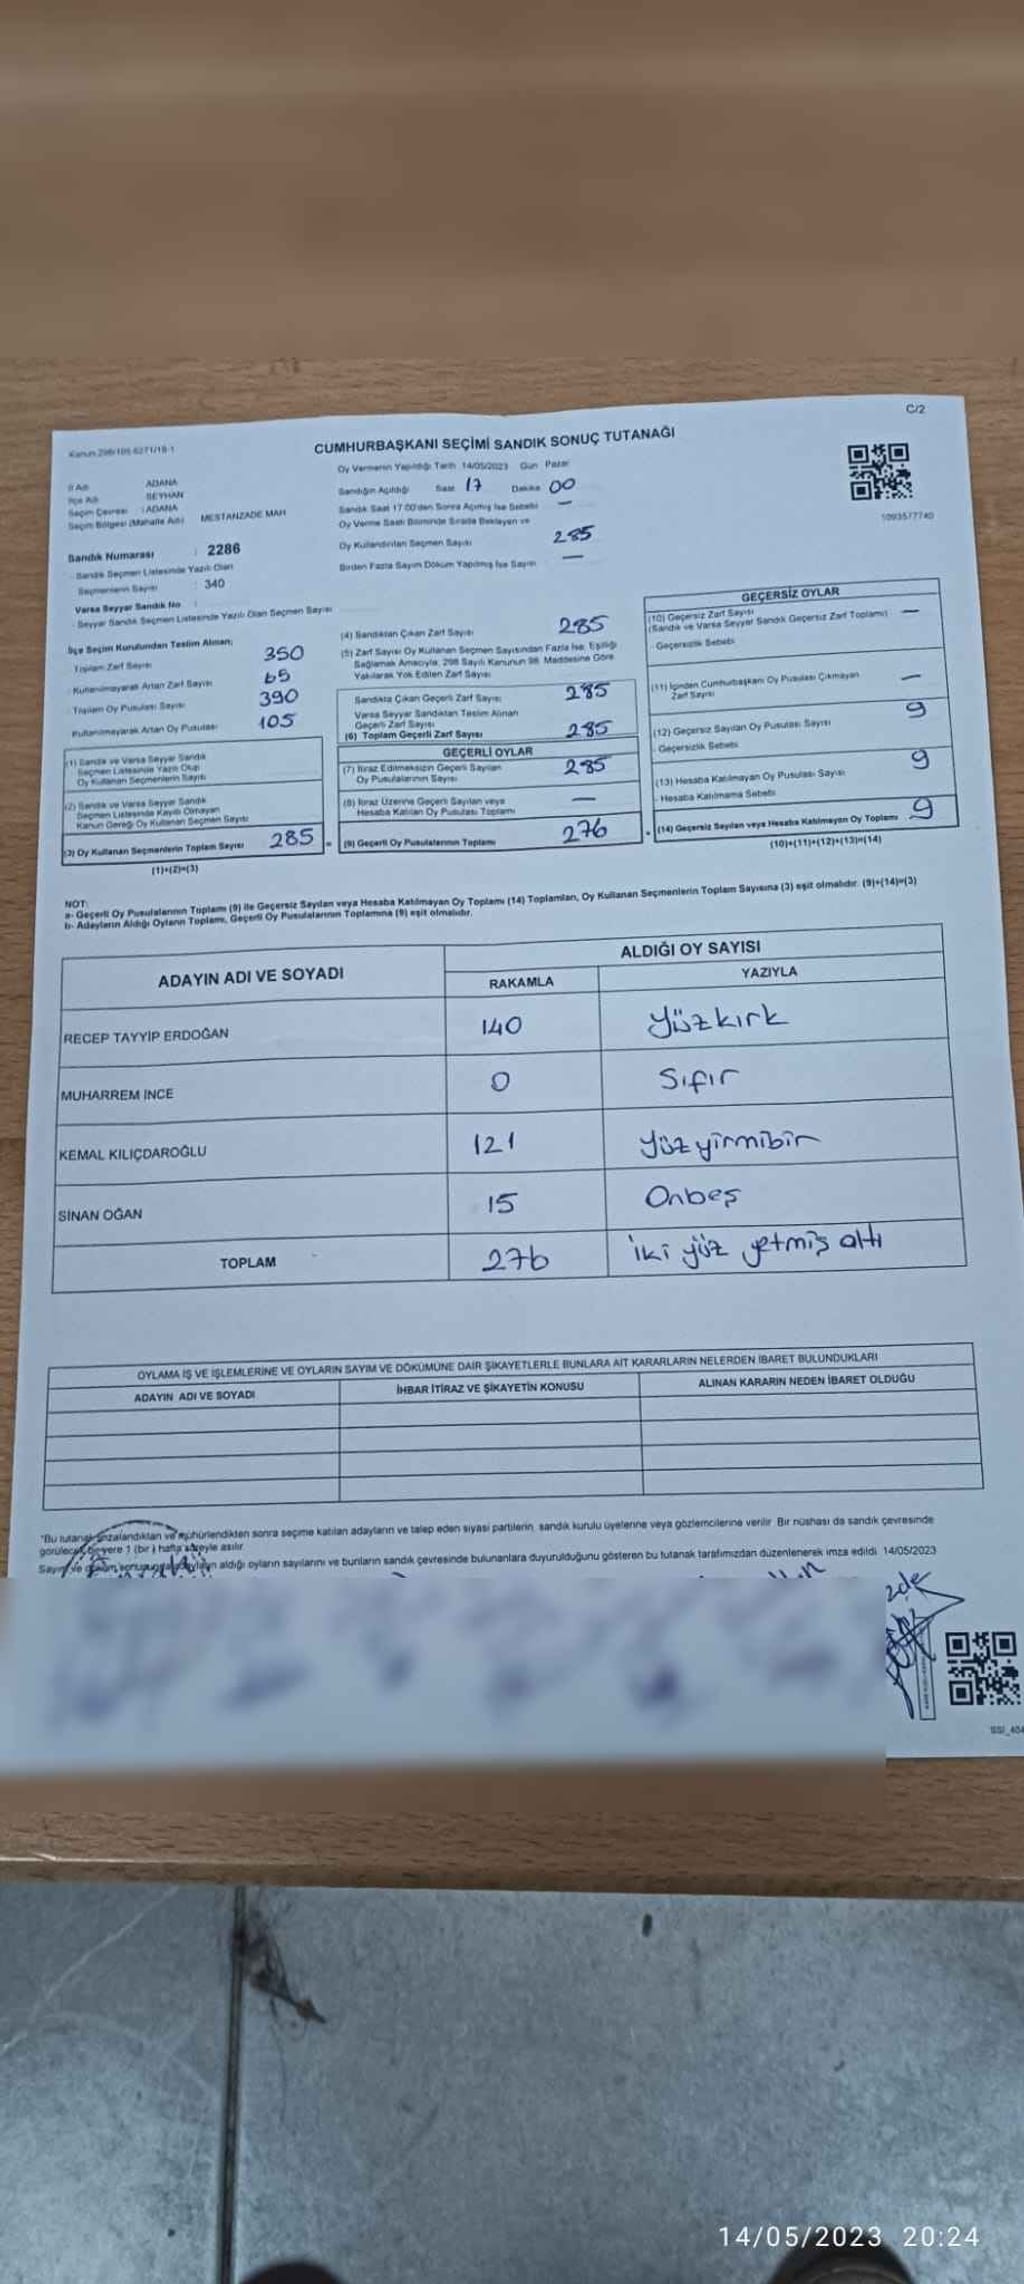 C/2
CUMHURBAŞKANI SEÇİMİ SANDIK SONUÇ TUTANAĞI
Oy Vermenin Yapıldığı Tarih 14/05/2023 Gün Pazar
İl Adı ADANA
İlçe Adı SEYHAN
Seçim Çevresi : ADANA
Seçim Bölgesi (Mahalle Adı) MESTANZADE MAH
Sandığın Açıldığı Saat 17 Dakika 00
Sandık Saat 17:00'den Sonra Açılmış İse Sebebi —
Oy Verme Saati Bitiminde Sırada Bekleyen ve
Oy Kullandırılan Seçmen Sayısı 285
Birden Fazla Sayım Döküm Yapılmış İse Sayısı —
1093577740
Sandık Numarası : 2286
- Sandık Seçmen Listesinde Yazılı Olan
Seçmenlerin Sayısı : 340
Varsa Seyyar Sandık No :
- Seyyar Sandık Seçmen Listesinde Yazılı Olan Seçmen Sayısı
İlçe Seçim Kurulundan Teslim Alınan;
Toplam Zarf Sayısı 350
Kullanılmayarak Artan Zarf Sayısı 65
Toplam Oy Pusulası Sayısı 390
Kullanılmayarak Artan Oy Pusulası 105
(1) Sandık ve Varsa Seyyar Sandık
Seçmen Listesinde Yazılı Olup
Oy Kullanan Seçmenlerin Sayısı
(2) Sandık ve Varsa Seyyar Sandık
Seçmen Listesinde Kayıtlı Olmayan
Kanun Gereği Oy Kullanan Seçmen Sayısı
(3) Oy Kullanan Seçmenlerin Toplam Sayısı 285
(1)+(2)=(3)
(4) Sandıktan Çıkan Zarf Sayısı 285
(5) Zarf Sayısı Oy Kullanan Seçmen Sayısından Fazla İse, Eşitliği
Sağlamak Amacıyla, 298 Sayılı Kanunun 98. Maddesine Göre
Yakılarak Yok Edilen Zarf Sayısı
Sandıkta Çıkan Geçerli Zarf Sayısı 285
Varsa Seyyar Sandıktan Teslim Alınan
Geçerli Zarf Sayısı
(6) Toplam Geçerli Zarf Sayısı 285
GEÇERLİ OYLAR
(7) İtiraz Edilmeksizin Geçerli Sayılan
Oy Pusulalarının Sayısı 285
(8) İtiraz Üzerine Geçerli Sayılan veya
Hesaba Katılan Oy Pusulası Toplamı —
(9) Geçerli Oy Pusulalarının Toplamı 276
GEÇERSİZ OYLAR
(10) Geçersiz Zarf Sayısı
(Sandık ve Varsa Seyyar Sandık Geçersiz Zarf Toplamı) —
- Geçersizlik Sebebi
(11) İçinden Cumhurbaşkanı Oy Pusulası Çıkmayan
Zarf Sayısı —
(12) Geçersiz Sayılan Oy Pusulası Sayısı 9
- Geçersizlik Sebebi
(13) Hesaba Katılmayan Oy Pusulası Sayısı 9
- Hesaba Katılmama Sebebi
(14) Geçersiz Sayılan veya Hesaba Katılmayan Oy Toplamı 9
(10)+(11)+(12)+(13)=(14)
NOT:
a- Geçerli Oy Pusulalarının Toplamı (9) ile Geçersiz Sayılan veya Hesaba Katılmayan Oy Toplamı (14) Toplamları, Oy Kullanan Seçmenlerin Toplam Sayısına (3) eşit olmalıdır. (9)+(14)=(3)
b- Adayların Aldığı Oyların Toplamı, Geçerli Oy Pusulalarının Toplamına (9) eşit olmalıdır.
ADAYIN ADI VE SOYADI ALDIĞI OY SAYISI
RAKAMLA YAZIYLA
RECEP TAYYİP ERDOĞAN 140 Yüzkırk
MUHARREM İNCE 0 Sıfır
KEMAL KILIÇDAROĞLU 121 Yüzyirmibir
SİNAN OĞAN 15 Onbeş
TOPLAM 276 iki yüz yetmiş altı
OYLAMA İŞ VE İŞLEMLERİNE VE OYLARIN SAYIM VE DÖKÜMÜNE DAİR ŞİKAYETLERLE BUNLARA AİT KARARLARIN NELERDEN İBARET BULUNDUKLARI
ADAYIN ADI VE SOYADI İHBAR İTİRAZ VE ŞİKAYETİN KONUSU ALINAN KARARIN NEDEN İBARET OLDUĞU
"Bu tutanak imzalandıktan ve mühürlendikten sonra seçime katılan adayların ve talep eden siyasi partilerin, sandık kurulu üyelerine veya gözlemcilerine verilir. Bir nüshası da sandık çevresinde
görülecek bir yere 1 (bir) hafta süreyle asılır.
aldığı oyların sayılarını ve bunların sandık çevresinde bulunanlara duyurulduğunu gösteren bu tutanak tarafımızdan düzenlenerek imza edildi. 14/05/2023
14/05/2023 20:24